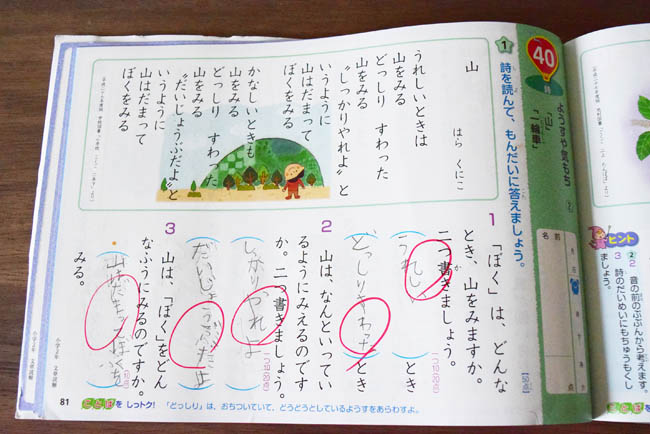 40
詩
ようすや気もち
「山」
「一輪車」
名前
月
日
点
1
詩を読んで、もんだいに答えましょう。
山
はら くにこ
うれしいときは
山をみる
どっしり すわった
山をみる
“しっかりやれよ”と
いうように
山はだまって
ぼくをみる
かなしいときも
山をみる
どっしり すわった
山をみる
“だいじょうぶだよ”と
いうように
山はだまって
ぼくをみる
1
「ぼく」は、どんな
とき、山をみますか。
二つ書きましょう。
か
うれしい
とき
どっしりすわった
とき
2
山は、なんといってい
るようにみえるのです
か。二つ書きましょう。
しっかりやれよ
だいじょうぶだよ
3
山は、「ぼく」をどん
なふうにみるのですか。
山はだまってぼくを
みる。
小学2年 文章読解
小学2年 文章読解
81
ことばをしっトク!
「どっしり」は、おちついていて、どうどうとしているようすをあらわすよ。
ヒント
2
音の前のぶぶんから考えます。
3
詩のだいめいにもちゅうもくし
ましょう。